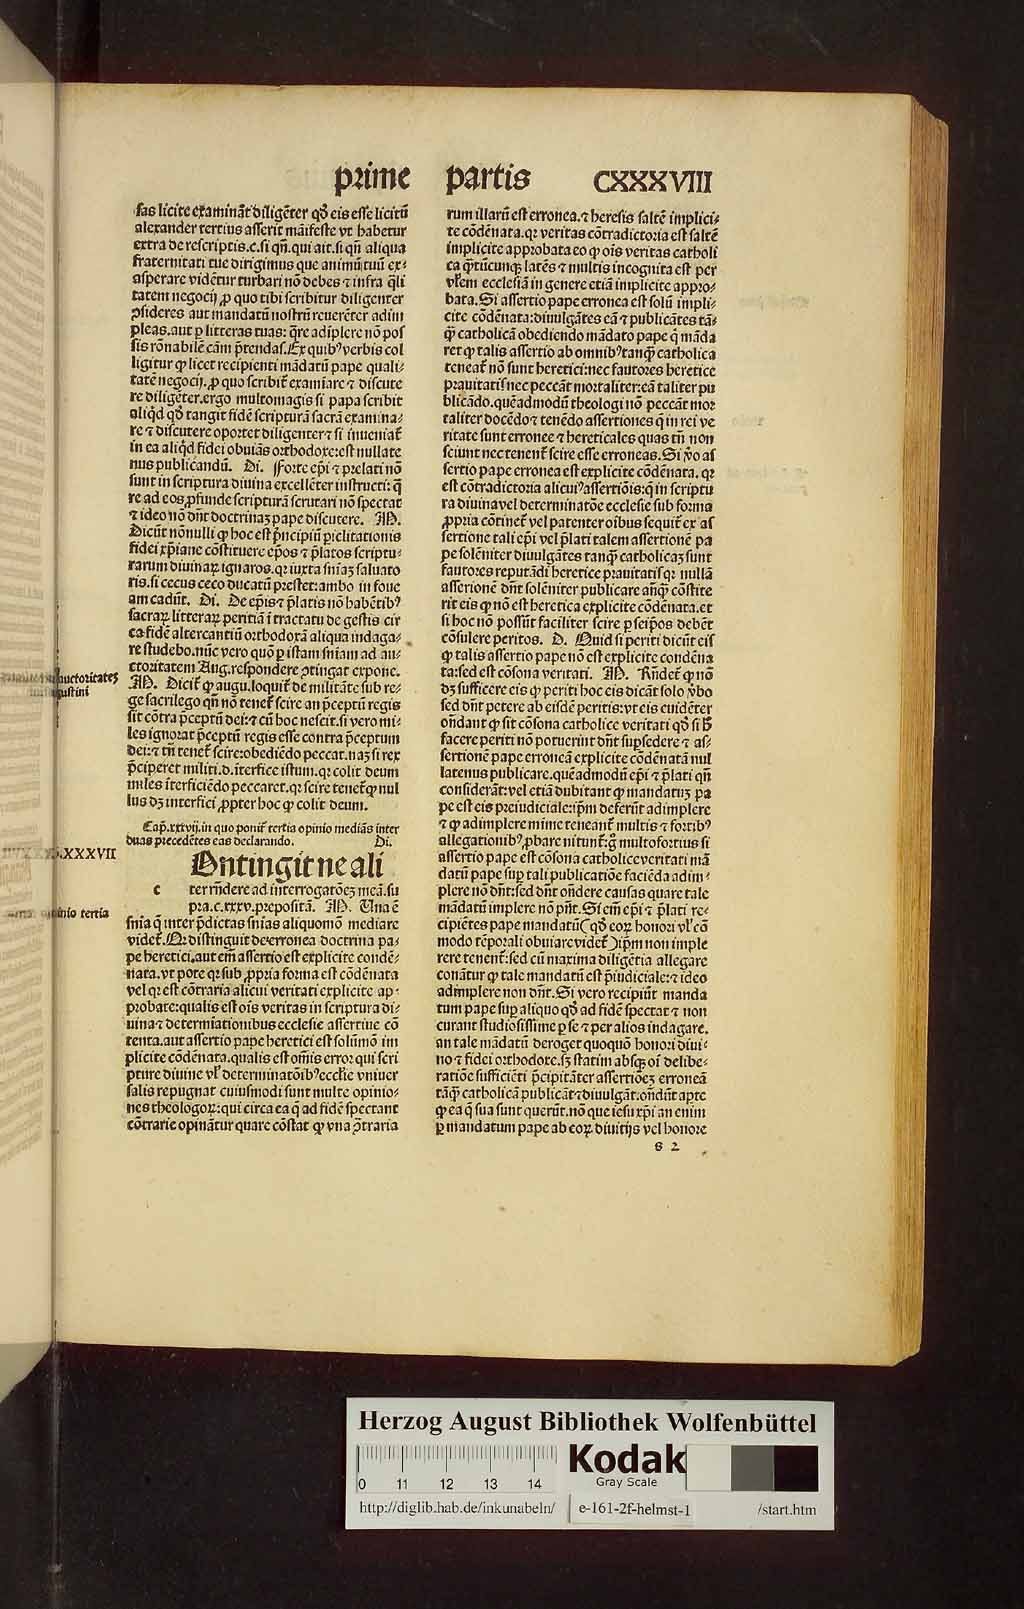 prime partis CXXXVIII
sas licite examināt diligēter qḋ eis esse licitū
alexander tertius asserit māifeste vt habetur
extra de rescriptis.c.si qñ.qui ait.si qñ aliqua
fraternitati tue dirigimus que animū tuū ex⸗
asperare vidētur turbari nō debes ⁊ infra q̄li
tatem negocij ꝓ quo tibi scribitur diligenter
ꝯsideres aut mandatū nostrū reuerēter adim
pleas.aut ꝑ litteras tuas: q̄re adiplere nō pos
sis rōnabilē cām p̄tendas.Ex quibꝰ verbis col
ligitur ꝙ licet recipienti mādatū pape quali⸗
tatē negocij.ꝓ quo scribit̄ examiare ⁊ discute
re diligēter.ergo multomagis si papa scribit
aliq̇d qḋ tangit fidē scripturā sacrā examina⸗
re ⁊ discutere oportet diligenter ⁊ si inueniat̄
in ea aliq̇d fidei obuiās orthodoxe: est nullate
nus publicandū. Di. Forte ep̄i ⁊ p̄elati nō
sunt in scriptura diuina excellēter instructi: q̄
re ad eos ꝓfunde scripturā scrutari nō spectat
⁊ ideo nō dñt doctrinaꝫ pape discutere. M.
Dicūt nōnulli ꝙ hoc est p̄ncipiū ꝑiclitationis
fidei xp̄iane cōstituere ep̄os ⁊ p̄latos scriptu⸗
rarum diuinaꝝ ignaros.qꝛ iuxta sn̄iaꝫ saluato
ris.si cecus ceco ducatū prestet: ambo in foue
am cadūt. Di. De ep̄is ⁊ p̄latis nō habētibꝰ
sacraꝝ litteraꝝ peritiā ī tractatu de gestis cir
ca fidē altercantiū orthodoxā aliqua indaga⸗
re studebo.nūc vero quō ꝑ istam sn̄iam ad au⸗
ctoritatem Aug.respondere ꝯtingat expone.
auctoritates
gustini
M. Dicit̄ ꝙ augu.loquit̄ de militāte sub re⸗
ge sacrilego qñ nō tenet̄ scire an p̄ceptū regis
sit cōtra p̄ceptū dei: ⁊ cū hoc nescit.si vero mi⸗
les ignorat p̄ceptū regis esse contra p̄ceptum
dei: ⁊ tñ tenet̄ scire: obediēdo peccat.naꝫ si rex
p̄ciperet militi.d.īterfice istum.qꝛ colit deum
miles īterficiēdo peccaret.qꝛ scire tenet̄ ꝙ nul
lus dꝫ interfici ꝓpter hoc ꝙ colit deum.
Cap̄.xxxvij.in quo ponit̄ tertia opinio mediās inter
duas precedētes eas declarando. Di.
XXXVII
Ontingit ne ali
c ter rn̄dere ad interrogatōeꝫ meā.su
pra.c.xxxv.prepositā. M. Una ē
inio tertia
sn̄ia q̄ inter p̄dictas sn̄ias aliquomō mediare
videt̄.Qꝛ distinguit de erronea doctrina pa⸗
pe heretici.aut em̄ assertio est explicite condē⸗
nata.vt pote qꝛ sub ꝓpria forma est cōdēnata
vel qꝛ est cōtraria alicui veritati explicite ap⸗
probate: qualis est oīs veritas in scriptura di⸗
uina ⁊ determiationibus ecclesie assertiue cō
tenta.aut assertio pape heretici est solūmō im
plicite cōdēnata.qualis est om̄is error qui scri
pture diuine vl̓ determinatōibꝰ eccl̄ie vniuer
salis repugnat cuiusmodi sunt multe opinio⸗
nes theologoꝝ: qui circa ea q̄ ad fidē spectant
cōtrarie opinātur quare cōstat ꝙ vna ꝯtraria
rum illarū est erronea.⁊ heresis saltē implici⸗
te cōdēnata.qꝛ veritas cōtradictoria est saltē
implicite approbata eo ꝙ oīs veritas catholi
ca q̄tūcunqꝫ latēs ⁊ multis incognita est per
vl̓em ecclesiā in genere etiā implicite appro⸗
bata.Si assertio pape erronea est solū impli⸗
cite cōdēnata: diuulgātes eā ⁊ publicātes tā⸗
q̄ catholicā obediendo mādato pape q̄ māda
ret ꝙ talis assertio ab omnibꝰ tanq̄ catholica
teneat̄ nō sunt heretici: nec fautores heretice
prauitatis nec peccāt mortaliter: eā taliter pu
blicādo.quēadmodū theologi nō peccāt mor
taliter docēdo ⁊ tenēdo assertiones q̄ in rei ve
ritate sunt erronee ⁊ hereticales quas tñ non
sciunt nec tenent̄ scire esse erroneas.Si v̊o as
sertio pape erronea est explicite cōdēnata.qꝛ
est cōtradictoria alicuiꝰ assertiōis: q̄ in scriptu
ra diuina vel determinatōe ecclesie sub forma
ꝓpria cōtinet̄ vel patenter oībus sequit̄ ex as
sertione tali ep̄i vel p̄lati talem assertionē pa
pe solēniter diuulgātes tanq̄ catholicaꝫ sunt
fautores reputādi heretice prauitatis qꝛ nullā
asserionē dn̄t solēniter publicare anq̄ cōstite
rit eis ꝙ nō est heretica explicite cōdēnata.et
si hoc nō possūt faciliter scire ꝑ seip̄os debēt
cōsulere peritos. D. Quid si periti dicūt eis
ꝙ talis assertio pape nō est explicite condēna
ta: sed est cōsona veritati. M. Rn̄det̄ ꝙ nō
dꝫ sufficere eis ꝙ periti hoc eis dicāt solo v̊bo
sed dn̄t petere ab eisdē peritis: vt eis euidēter
on̄dant ꝙ sit cōsona catholice veritati qḋ si h̄
facere periti nō potuerint dn̄t suꝑsedere ⁊ as⸗
sertionē pape erroneā explicite cōdēnatā nul
latenus publicare.quēadmodū ep̄i ⁊ p̄lati qñ
considerāt: vel etiā dubitant ꝙ mandatuꝫ pa
pe est eis preiudiciale: ip̄m deferūt adimplere
⁊ ꝙ adimplere mīme teneant̄ multis ⁊ fortibꝰ
allegationibꝰ ꝓbare nitunt̄: g̊ multo fortius si
assertio pape est cōsona catholice veritati mā
datū pape suꝑ tali publicatiōe faciēda adim⸗
plere nō dn̄t: sed dn̄t on̄dere causas quare tale
mādatū implere nō pn̄t.Si em̄ ep̄i ⁊ p̄lati re⸗
cipiētes pape mandatū(qḋ eoꝝ honori vl̓ cō
modo tēporali obuiare videt̄)ip̄m non imple
rere tenent̄: sed cū maxima diligētia allegare
conātur ꝙ tale mandatū est p̄iudiciale: ⁊ ideo
adimplere non dn̄t.Si vero recipiūt manda
tum pape suꝑ aliquo qḋ ad fidē spectat ⁊ non
curant studiosissime ꝑ se ⁊ per alios indagare.
an tale mādatū deroget quoquō honori diui⸗
no ⁊ fidei orthodoxe.sꝫ statim absqꝫ oī delibe⸗
ratiōe sufficiēti p̄cipitāter assertiōeꝫ erroneā
tāq̄ catholicā publicāt ⁊ diuulgāt.on̄dūt aꝑte
ꝙ ea q̄ sua sunt querūt.nō que iesu xp̄i an enim
ꝑ mandatum pape ab eoꝝ diuitijs vel honore
s 2
Herzog August Bibliothek Wolfenbüttel
0 11 12 13 14
Kodak
Gray Scale
http://diglib.hab.de/inkunabeln/ e-161-2f-helmst-1 /start.htm